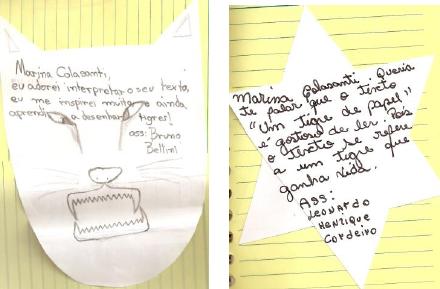 Marina Colasanti,
eu adorei interpretar o seu texto,
eu me inspirei muito e ainda
aprendi a desenhar tigres!
ass: Bruno
Bellini
Marina Colasanti Queria
te falar que o texto
"Um tigre de papel"
é gostoso de ler. Pois
o texto se refere
a um tigre que
ganha vida.
Ass:
LEONARDO
HENRIQUE
CORDEIRO